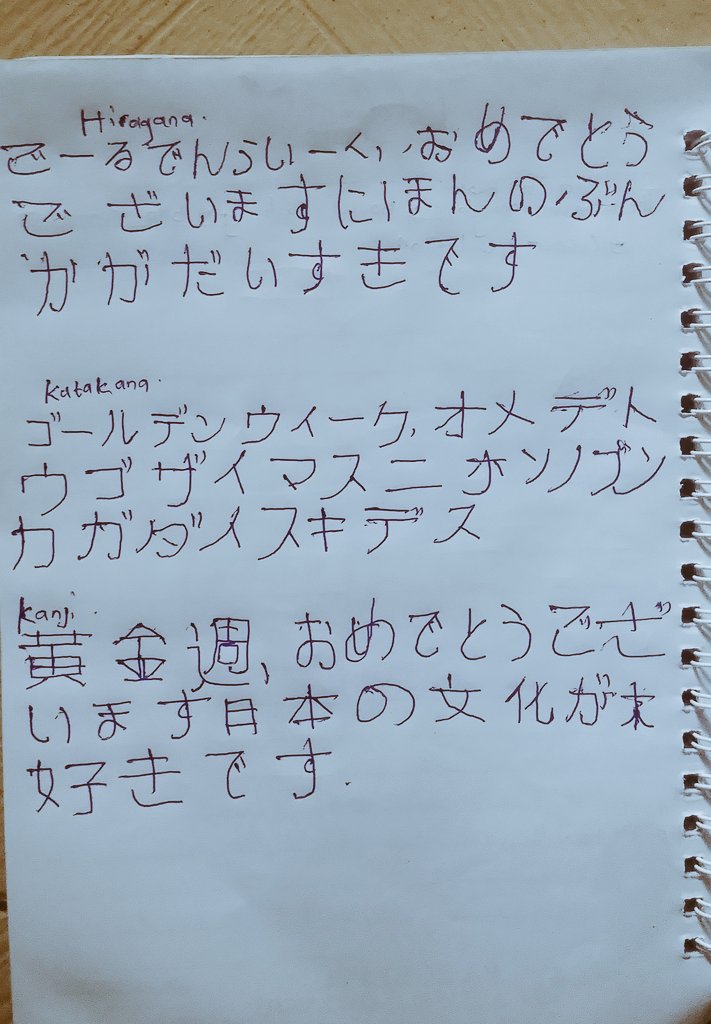 Hiragana.
ごーるでんうぃーく, おめでとう
ございますにほんのぶん
かがだいすきです
Katakana.
ゴールデンウィーク, オメデト
ウゴザイマスニホンノブン
カガダイスキデス
Kanji.
黄金週、おめでとうござ
います日本の文化が大
好きです.